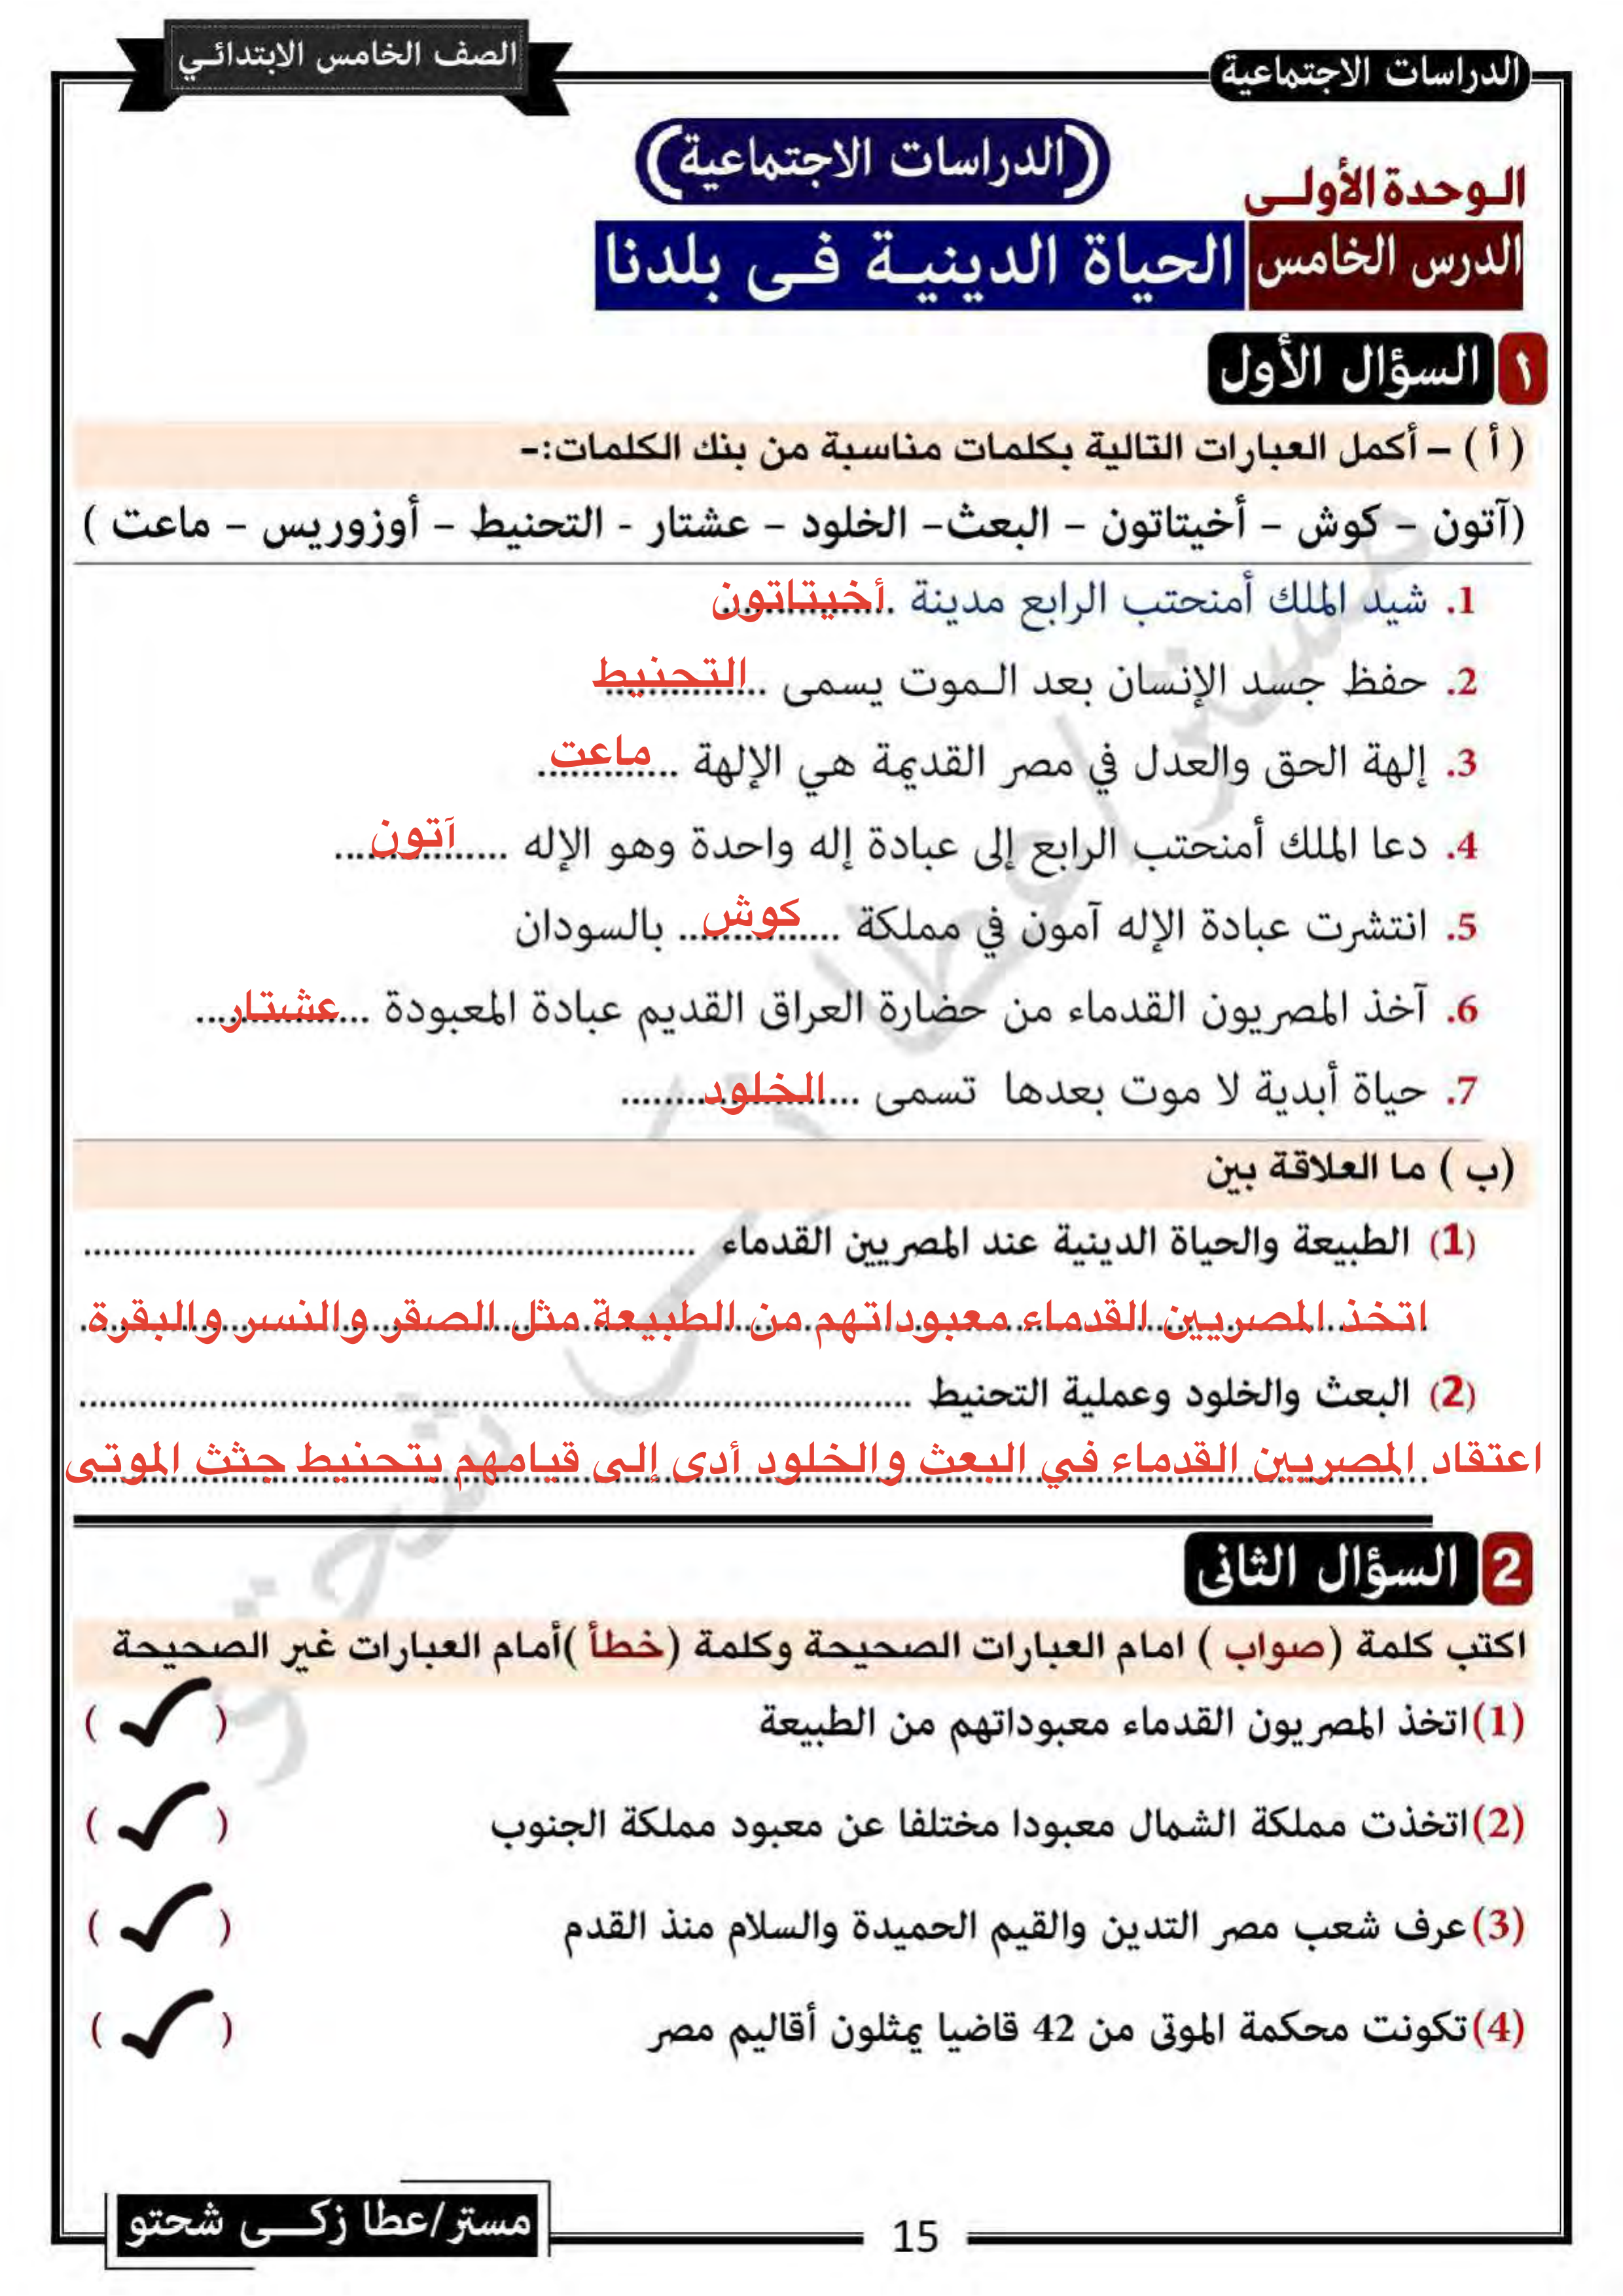 الصف الخامس الابتدائي
الدراسات الاجتماعية
(الدراسات الاجتماعية)
الوحدة الأولى
الدرس الخامس الحياة الدينية فى بلدنا
١ السؤال الأول
( أ ) – أكمل العبارات التالية بكلمات مناسبة من بنك الكلمات:-
(آتون – كوش – أخيتاتون – البعث– الخلود – عشتار - التحنيط – أوزوريس – ماعت )
1. شيد الملك أمنحتب الرابع مدينة أخيتاتون
2. حفظ جسد الإنسان بعد الموت يسمى التحنيط
3. إلهة الحق والعدل في مصر القديمة هي الإلهة ماعت
4. دعا الملك أمنحتب الرابع إلى عبادة إله واحدة وهو الإله آتون
5. انتشرت عبادة الإله آمون في مملكة كوش بالسودان
6. آخذ المصريون القدماء من حضارة العراق القديم عبادة المعبودة عشتار
7. حياة أبدية لا موت بعدها تسمى الخلود
(ب ) ما العلاقة بين
(1) الطبيعة والحياة الدينية عند المصريين القدماء ......
اتخذ المصريين القدماء معبوداتهم من الطبيعة مثل الصقر والنسر والبقرة
(2) البعث والخلود وعملية التحنيط ......
اعتقاد المصريين القدماء في البعث والخلود أدى إلى قيامهم بتحنيط جثث الموتى
2 السؤال الثانى
اكتب كلمة (صواب ) امام العبارات الصحيحة وكلمة (خطأ )أمام العبارات غير الصحيحة
(1)اتخذ المصريون القدماء معبوداتهم من الطبيعة ( ✓ )
(2)اتخذت مملكة الشمال معبودا مختلفا عن معبود مملكة الجنوب ( ✓ )
(3)عرف شعب مصر التدين والقيم الحميدة والسلام منذ القدم ( ✓ )
(4)تكونت محكمة الموتى من 42 قاضيا يمثلون أقاليم مصر ( ✓ )
مستر/عطا زكى شحتو
15
مستر/عطا زكى شحتو